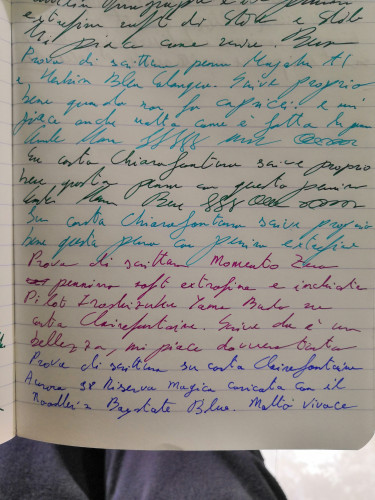 extrafine soft di Stilo e Stile
Mi piace come scrive. Buon
Prova di scrittura penna Magahu A1
e Herbin Bleu Calanque. Scrive proprio
bene quando non fa capricci e mi
piace anche molto come è fatta la penna
Su carta Chiarafontana scrive proprio
bene questa penna con questo pennino
Su carta Chiarafontana scrive proprio
bene questa penna con pennino extrafine
Prova di scrittura Momento Zero
pennino soft extrafine e inchiostro
Pilot Iroshizuku Yama Budo su
carta Clairefontaine. Scrive che è una
bellezza, mi piace davvero tanto
Prova di scrittura su carta Clairefontaine
Aurora 88 Riserva Magica caricata con il
Noodler's Baystate Blue. Molto vivace